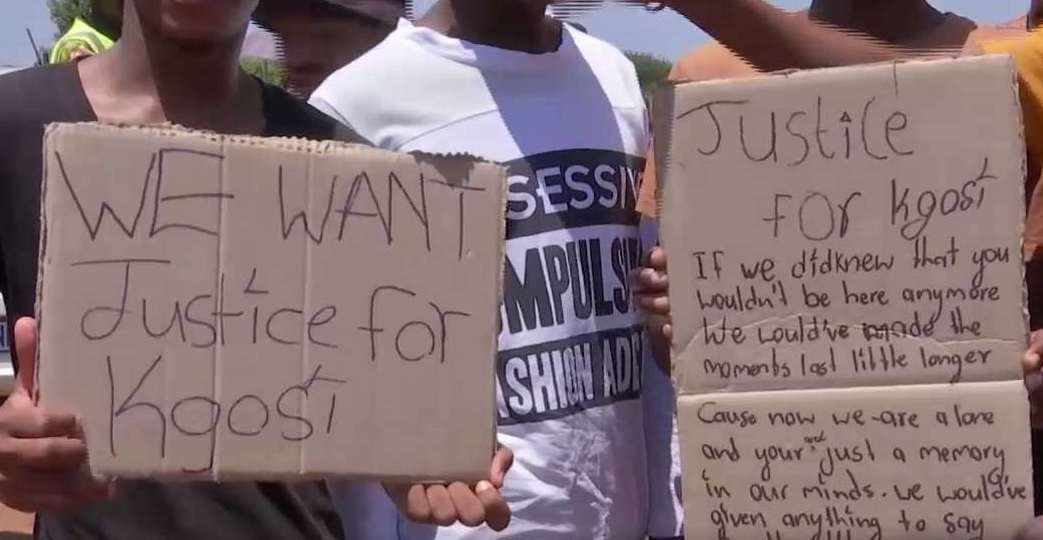 WE WANT
Justice for
Kgosi
SESSIV
MPULSI
ASHION ADD
Justice
for Kgosi
If we didknew that you
wouldn't be here anymore
We would've made the
moments last little longer
Cause now we are alone
and your just a memory
in our minds. we would've
given anything to say